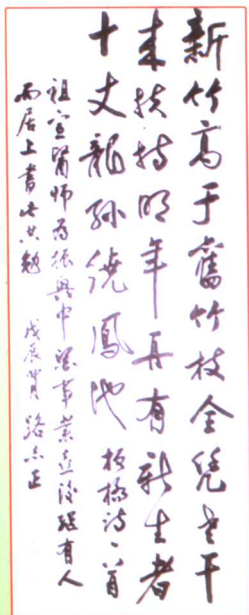 新竹高于舊竹枝全凭老干
来扶持明年再有新生者
十丈龍孫繞鳳池 板橋诗一首
祖宣醫师为振興中医事業造诣强有人
而居上書此共勉 戊辰 路志正